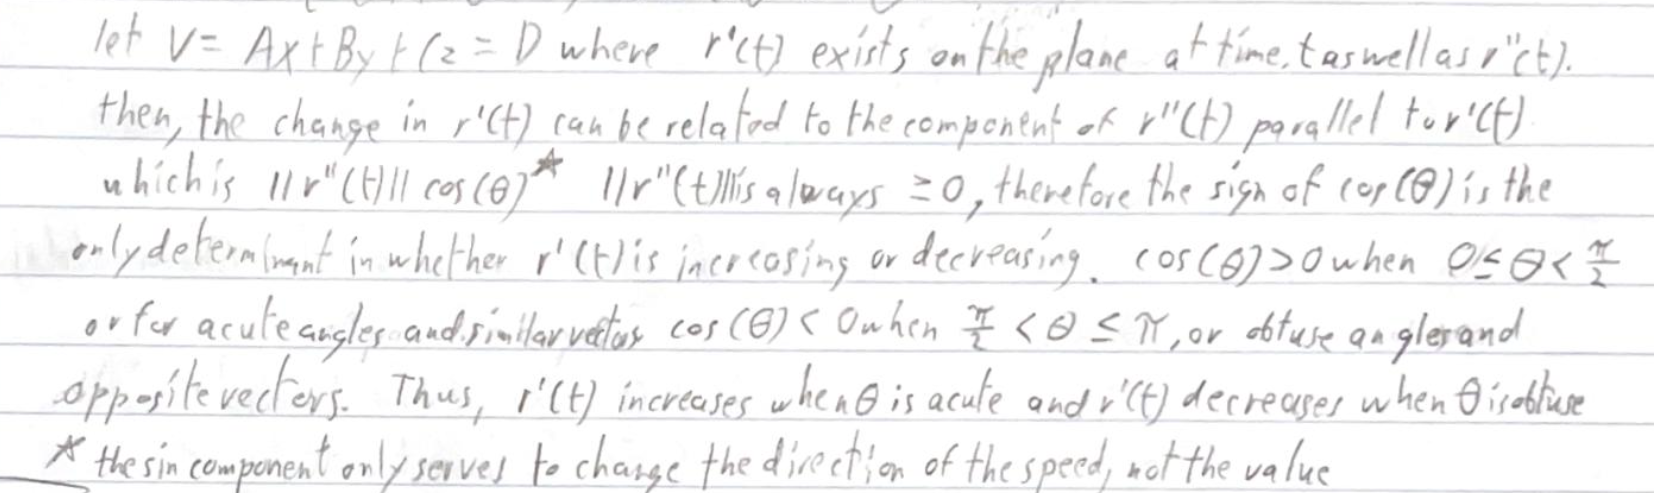 let V = Ax+By+Cz = D where r'(t) exists on the plane at time, t as well as r"(t).
then, the change in r'(t) can be related to the component of r"(t) parallel to r'(t)
which is ||r"(t)|| cos(θ)* ||r"(t)|| is always ≥0, therefore the sign of cos(θ) is the
only determinant in whether r'(t) is increasing or decreasing. cos(θ)>0 when 0≤θ<π/2
or for acute angles and similar vectors cos(θ)<0 when π/2<θ≤π, or obtuse angles and
opposite vectors. Thus, r'(t) increases when θ is acute and r'(t) decreases when θ is obtuse
* the sin component only serves to change the direction of the speed, not the value